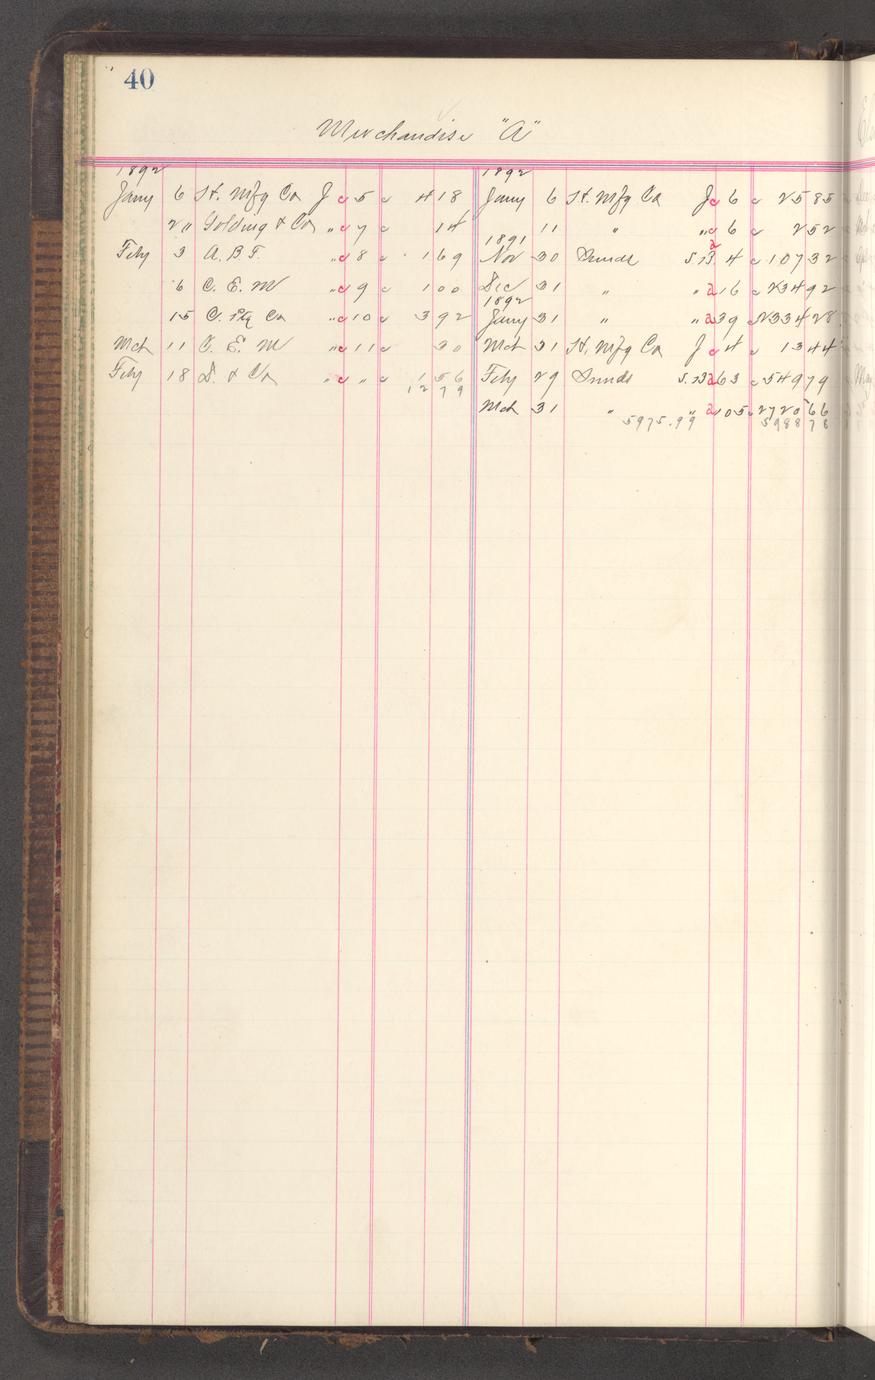 40
Merchandise "A"
1892
Jany 6 St. Mfg Co J 5 4 18
2 " Golding & Co " 7 14
Feby 3 A. B F. " 8 1 69
6 C. E. M " 9 1 00
15 C. Co " 10 3 92
Mch 11 C. E. M " 11 30
Feby 18 D. & Co " " 1 56
12 79
1892
Jany 6 St. Mfg Co J 6 25 85
11 " " 6 2 52
1891
Nov 30 Sunds S.B 4 107 32
Dec 31 " " 216 234 92
1892
Jany 31 " " 239 2334 28
Mch 31 St. Mfg Co J 4 13 44
Feby 29 Sunds S.B 263 549 79
Mch 31 " " 2105 2720 66
5975.99 5988 78